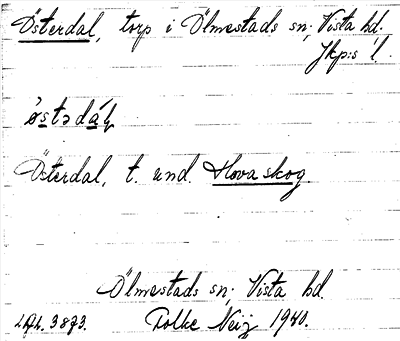 Österdal, torp i Ölmestads sn; Vista hd.
Jkp:s l.
østədáɫ
Österdal, t. und. Hova skog.
Ölmestads sn; Vista hd.
Folke Neij 1940.